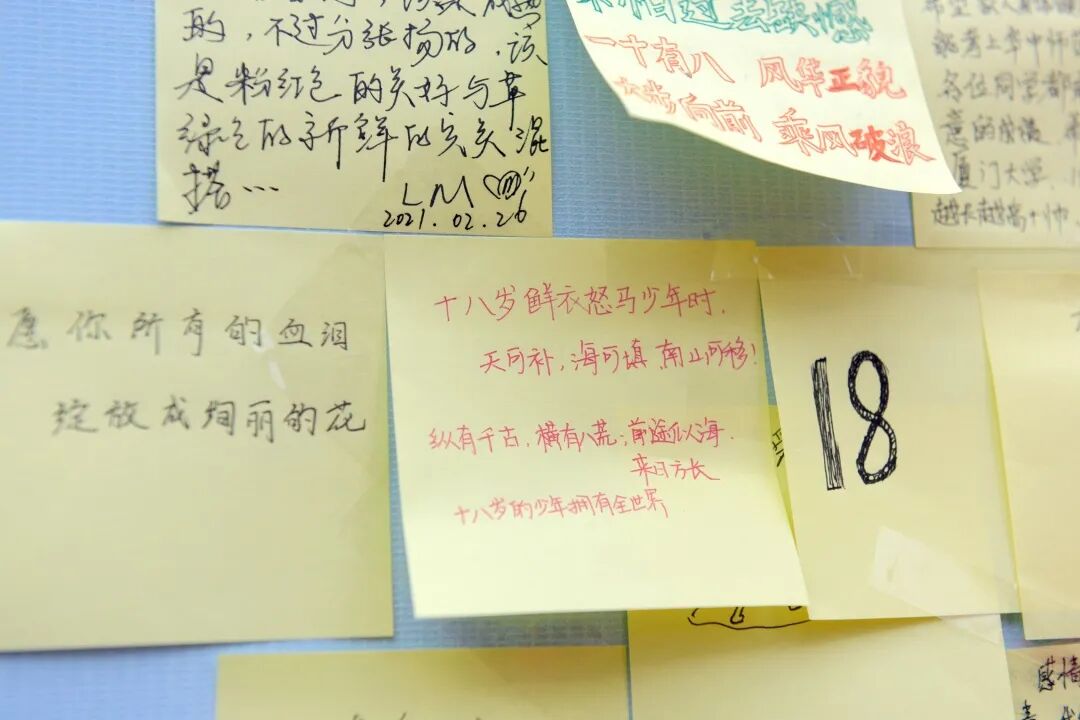 的，不过分张扬的，该
是粉红色的美好与草
绿色的新鲜的完美混
搭…
LM
2021.02.26
过去
一十有八 风华正貌
大步向前 乘风破浪
各位同学都
意的成绩
厦门大学
越长越高+帅
愿你所有的血泪
绽放成绚丽的花
十八岁鲜衣怒马少年时，
天可补，海可填，南山可移！
纵有千古，横有八荒；前途似海，
来日方长
十八岁的少年拥有全世界
18
感情